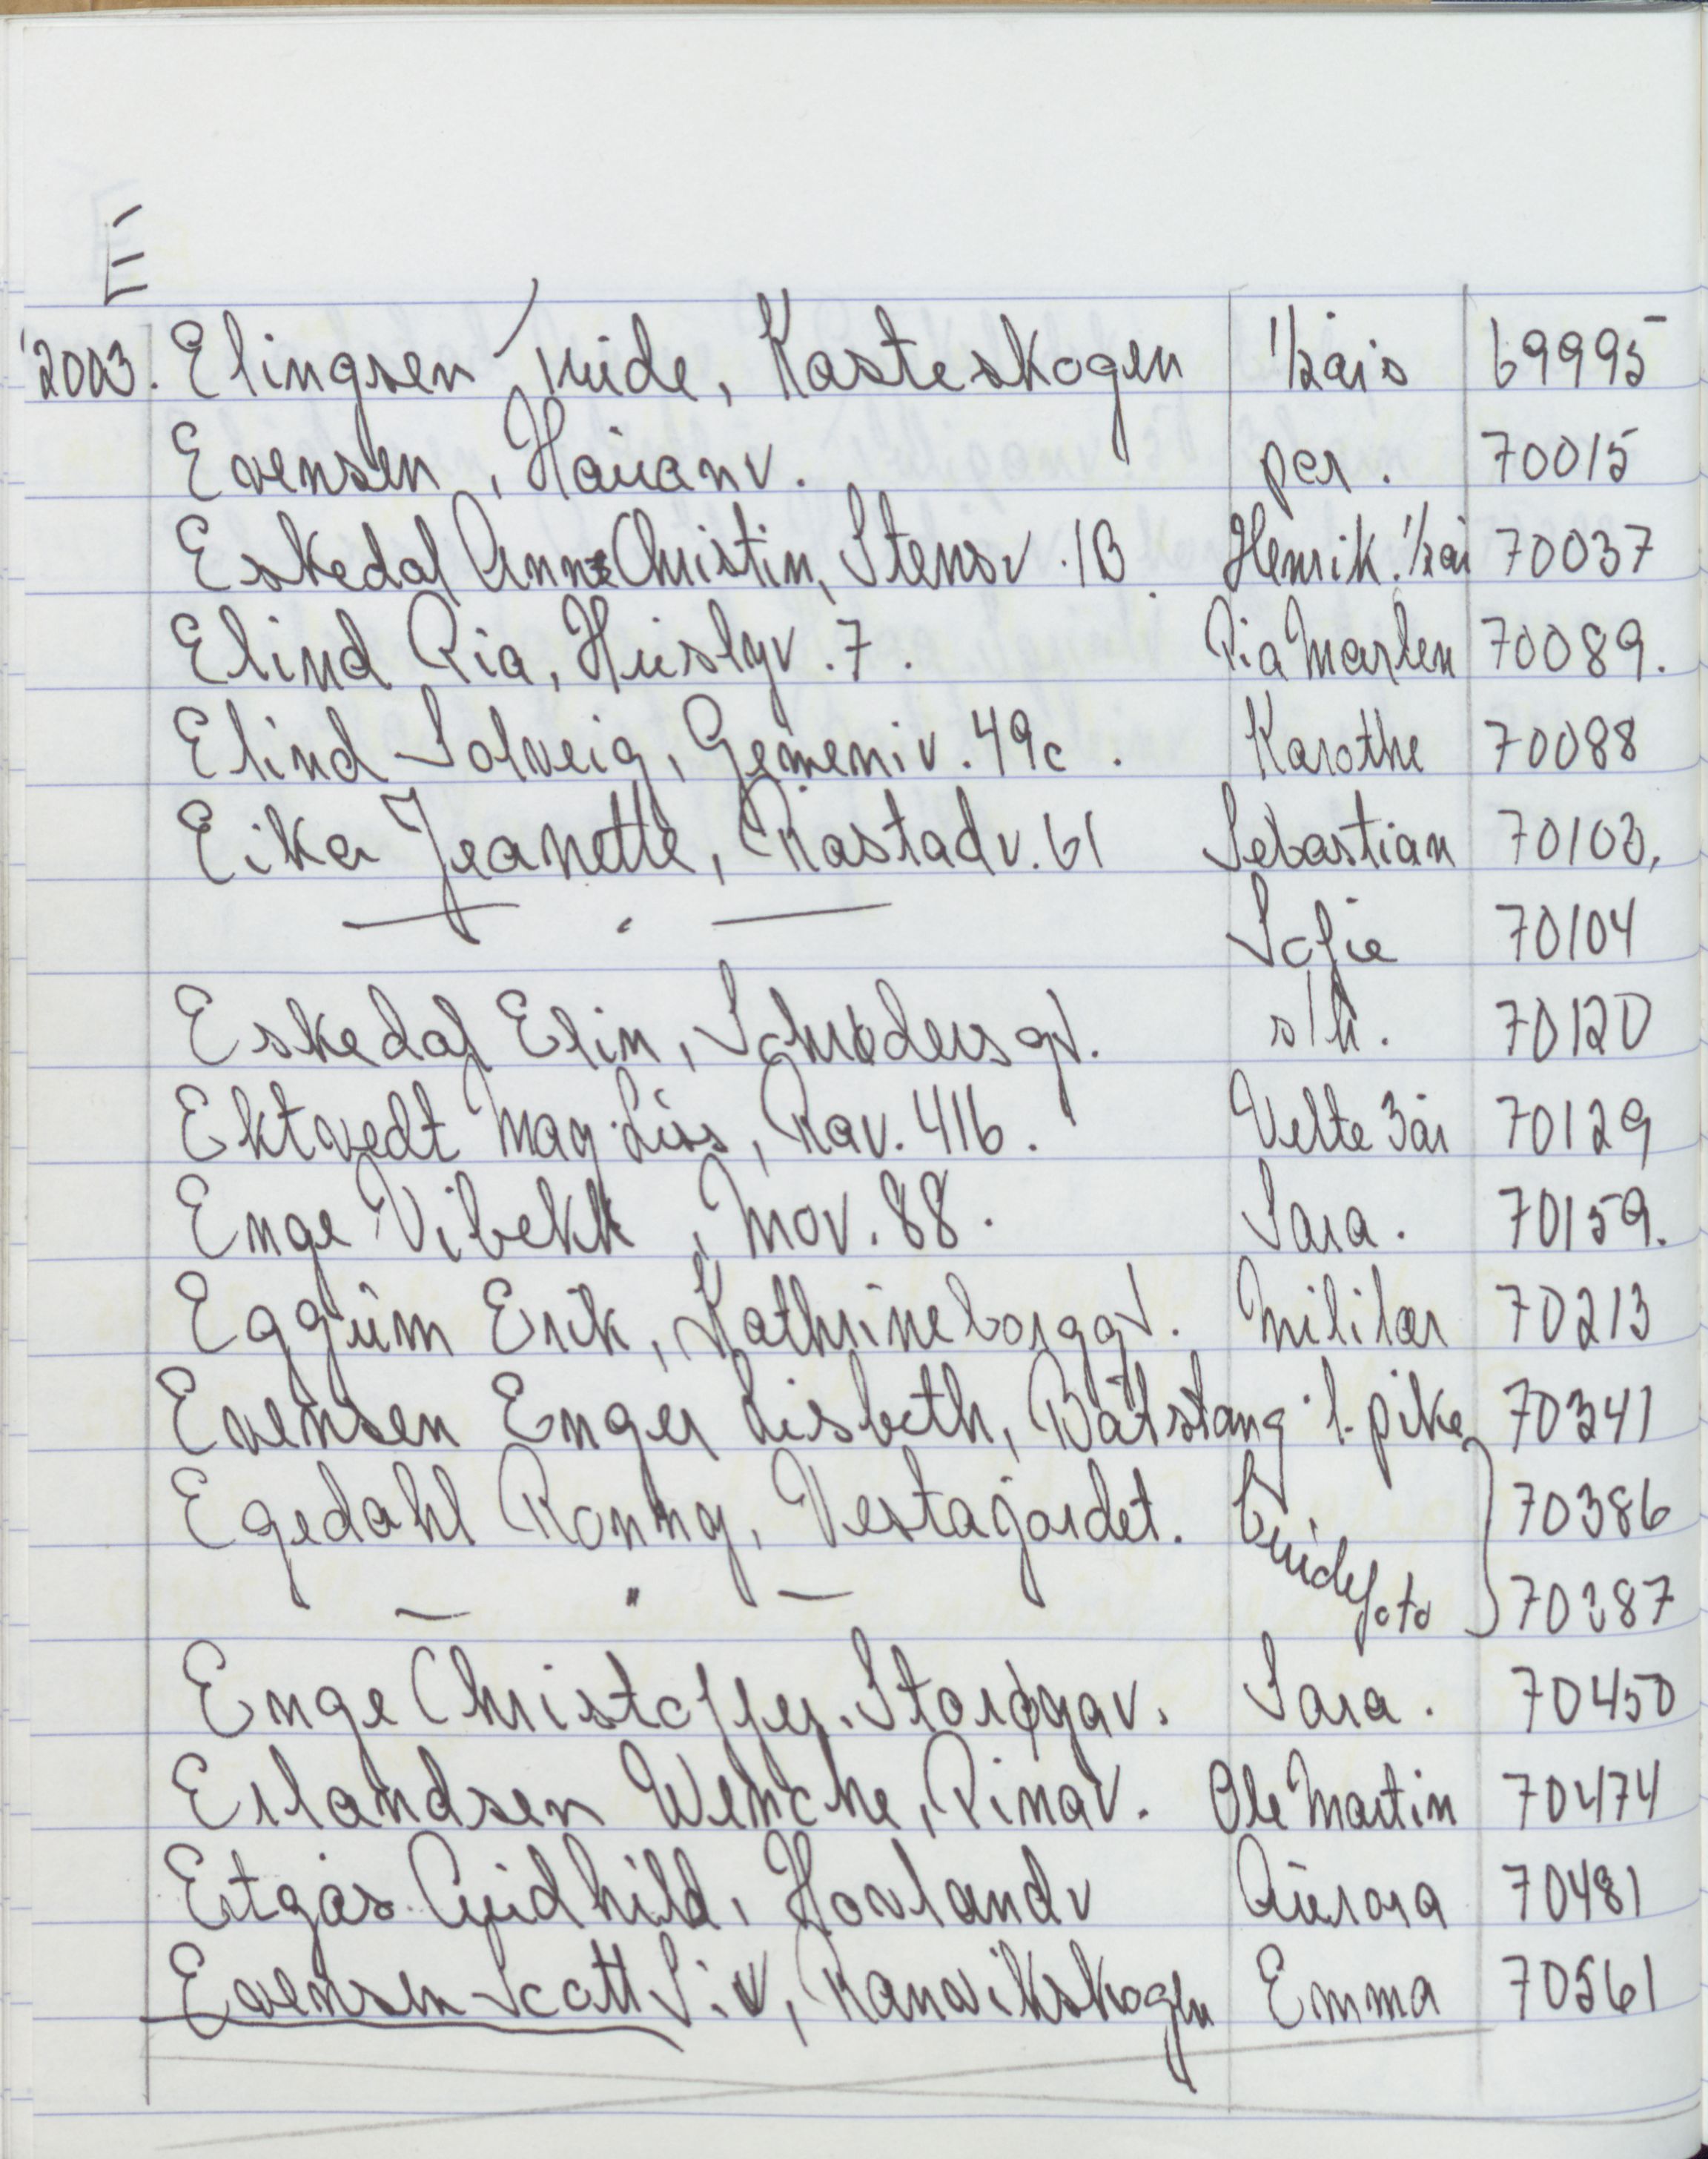 E
2003. Elingsen Tuide, Kasteskogen 1/2 års 69995
Evensen, Hauanv. per. 70015
Eskedal Ann Christin, Stensv. 1B Henrik. 1/2 år 70037
Elind Pia, Huslyv. 7. Pia Marlen 70089.
Elind Solveig, Gemeniv. 49c. Karothe 70088
Eika Jeanette, Råstadv. 61 Sebastian 70103.
— " — Sofie 70104
Eskedal Elin, Schrødersgt. s/h. 70120
Ektvedt May-Liss, Rav. 416. Velte 3 år 70129
Enge Vibekk, Mov. 88. Sara. 70159.
Eggum Erik, Kathrineborggt. Militær 70213
Evensen Enger Lisbeth, Båtstang l. pike 70341
Egedahl Ronny, Vestajordet. Brudefoto 70386
— " — 70387
Enge Christoffer. Storøyav. Sara. 70450
Erlandsen Wenche, Pinav. Ole Martin 70474
Etgas Gudhild, Hovlandv Aurora 70481
Evensen Scott Siv, Ranvikskogen Emma 70561